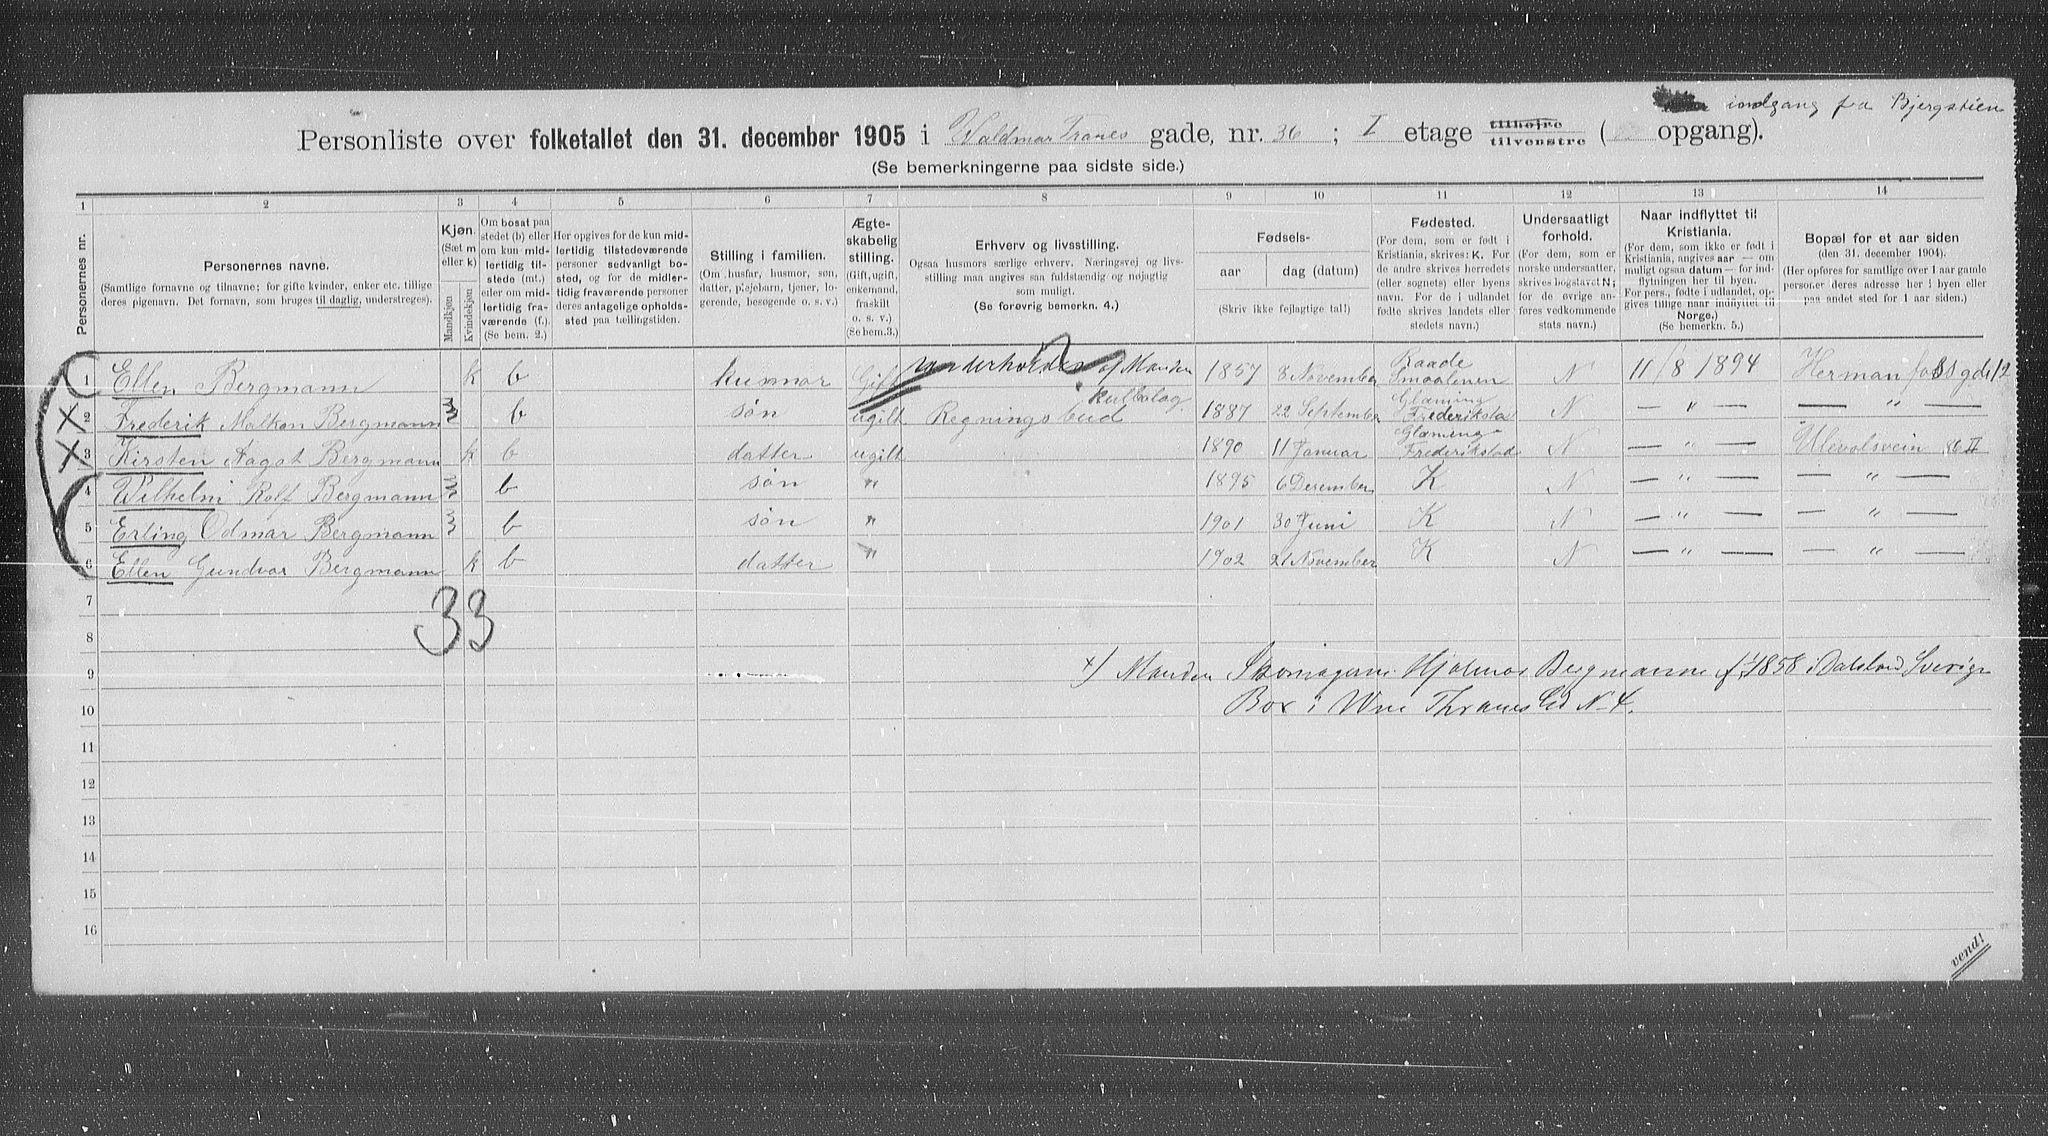 indgang fra Bjergstien
Personliste over folketallet den 31. december 1905 i Waldmar Tranes gade, nr. 36 ; I etage tilhøire tilvenstre ( opgang).
(Se bemerkningerne paa sidste side.)
1 2 3 4 5 6 7 8 9 10 11 12 13 14
Personernes nr.
Personernes navne.
(Samtlige fornavne og tilnavne; for gifte kvinder, enker etc. tillige
deres pigenavn. Det fornavn, som bruges til daglig, understreges).
Kjøn.
(Sæt m
eller k)
Mandkjøn
Kvindekjøn
Om bosat paa
stedet (b) eller
om kun mid-
lertidig til-
stede (mt.)
eller om mid-
lertidig fra-
værende (f.).
(Se bem. 2.)
Her opgives for de kun mid-
lertidig tilstedeværende
personer sedvanligt bo-
sted, og for de midler-
tidig fraværende personer
deres antagelige opholds-
sted paa tællingstiden.
Stilling i familien.
(Om husfar, husmor, søn,
datter, plejebarn, tjener, lo-
gerende, besøgende o. s. v.)
Ægte-
skabelig
stilling.
(Gift, ugift,
enkemand,
fraskilt
o. s. v.)
(Se bem.3.)
Erhverv og livsstilling.
Ogsaa husmors særlige erhverv. Næringsvej og livs-
stilling maa angives saa fuldstændig og nøjagtig
som muligt.
(Se forøvrig bemerkn. 4.)
Fødsels-
aar dag (datum)
(Skriv ikke fejlagtige tal!)
Fødested.
(For dem, som er født i
Kristiania, skrives: K. For
de andre skrives herredets
(eller sognets) eller byens
navn. For de i udlandet
fødte skrives landets eller
stedets navn.)
Undersaatligt
forhold.
(For dem, som er
norske undersaatter,
skrives bogstavet N;
for de øvrige an-
føres vedkommende
stats navn.)
Naar indflyttet til
Kristiania.
(For dem, som ikke er født i
Kristiania, angives aar — om
muligt ogsaa datum — for ind-
flytningen her til byen.
For pers., fødte i udlandet, op-
gives tillige naar indflyttet til
Norge.)
(Se bemerkn. 5.)
Bopæl for et aar siden
(den 31. december 1904).
(Her opføres for samtlige over 1 aar gamle
personer deres adresse her i byen eller
paa andet sted for 1 aar siden.)
1 Ellen Bergmann k b husmor Gift Underholdes af Manden 1857 8 November Raade Smaalenen 11/8 1894 Herman foss gde 12
2 Frederik Malkon Bergmann m b søn ugift Regningsbud 1887 22 September Glæming Frederikstad N — " — — " —
3 Kirsten Aagot Bergmann k b datter ugift 1890 11 Januar Glæminge Frederikstad N — " — Ulevolsvein 86 II
4 Wilhelm Rolf Bergmann m b søn " 1895 6 Desember K N — " — — " —
5 Erling Odmar Bergmann m b søn " 1901 30 Juni K N — " — — " —
6 Ellen Gundvor Bergmann k b datter " 1902 21 November K N — " — — " —
7
33
8
9 x) Manden Skomager Hjalmar Bergmann f. 1858 i Dalsland Sverige
10 Bor i Wm Thranes Gd N. 4.
11
12
13
14
15
16
vend!